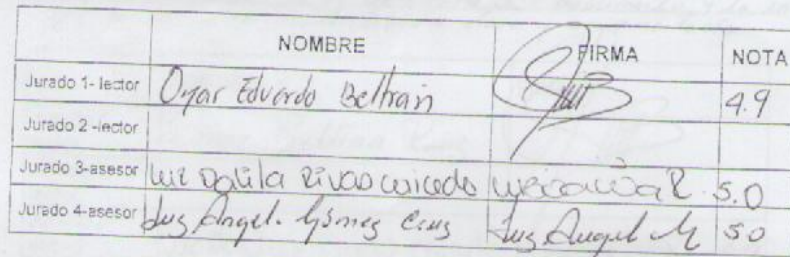 NOMBRE FIRMA NOTA
Jurado 1- lector Omar Eduardo Beltrán 4.9
Jurado 2 -lector
Jurado 3-asesor Luz Dalila Rivas Caicedo 5.0
Jurado 4-asesor Luz Angel. Gómez Cruz Luz Angel 50